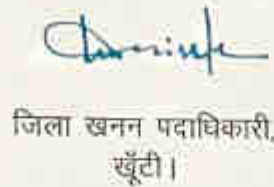 जिला खनन पदाधिकारी,
खूँटी।